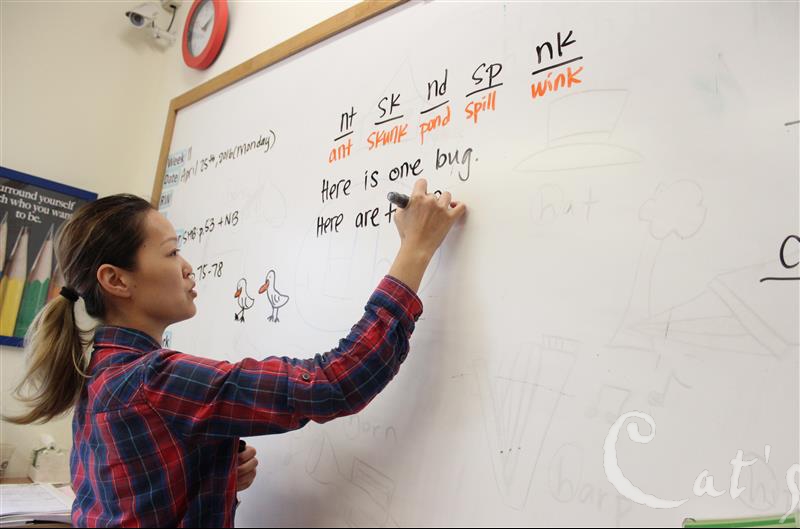 nt sk nd sp nk
ant skunk pond spill wink
Week 11
Date: April 25th, 2016 (Monday)
Here is one bug.
Here are t
p.53 + NB
75-78
urround yourself
ch who you wan
to be.
hat
Cat's